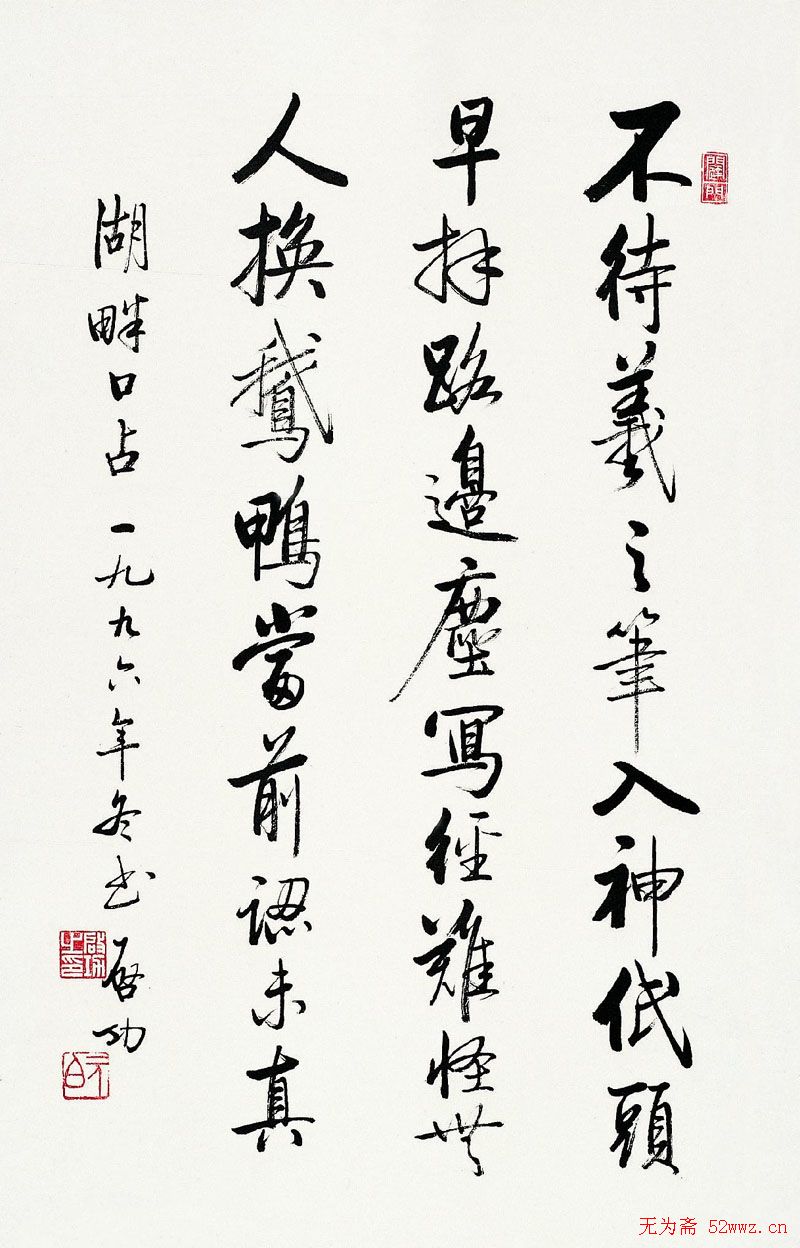 不待羲之筆入神低頭
早拜路邊塵寫經難怪無
人換鵞鴨當前認未真
湖畔口占 一九九六年冬书 启功
啟功之印
元白
无为斋 52wwz.cn